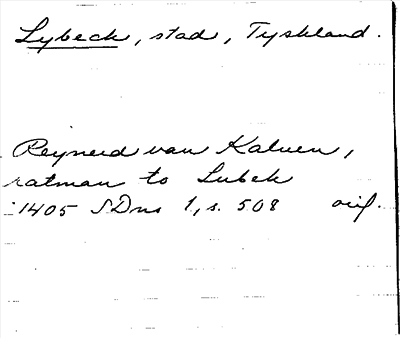 Lybeck, stad, Tyskland.
Reynerd van Kaluen,
ratman to Lubek
1405 SDns 1, s. 508 orig.